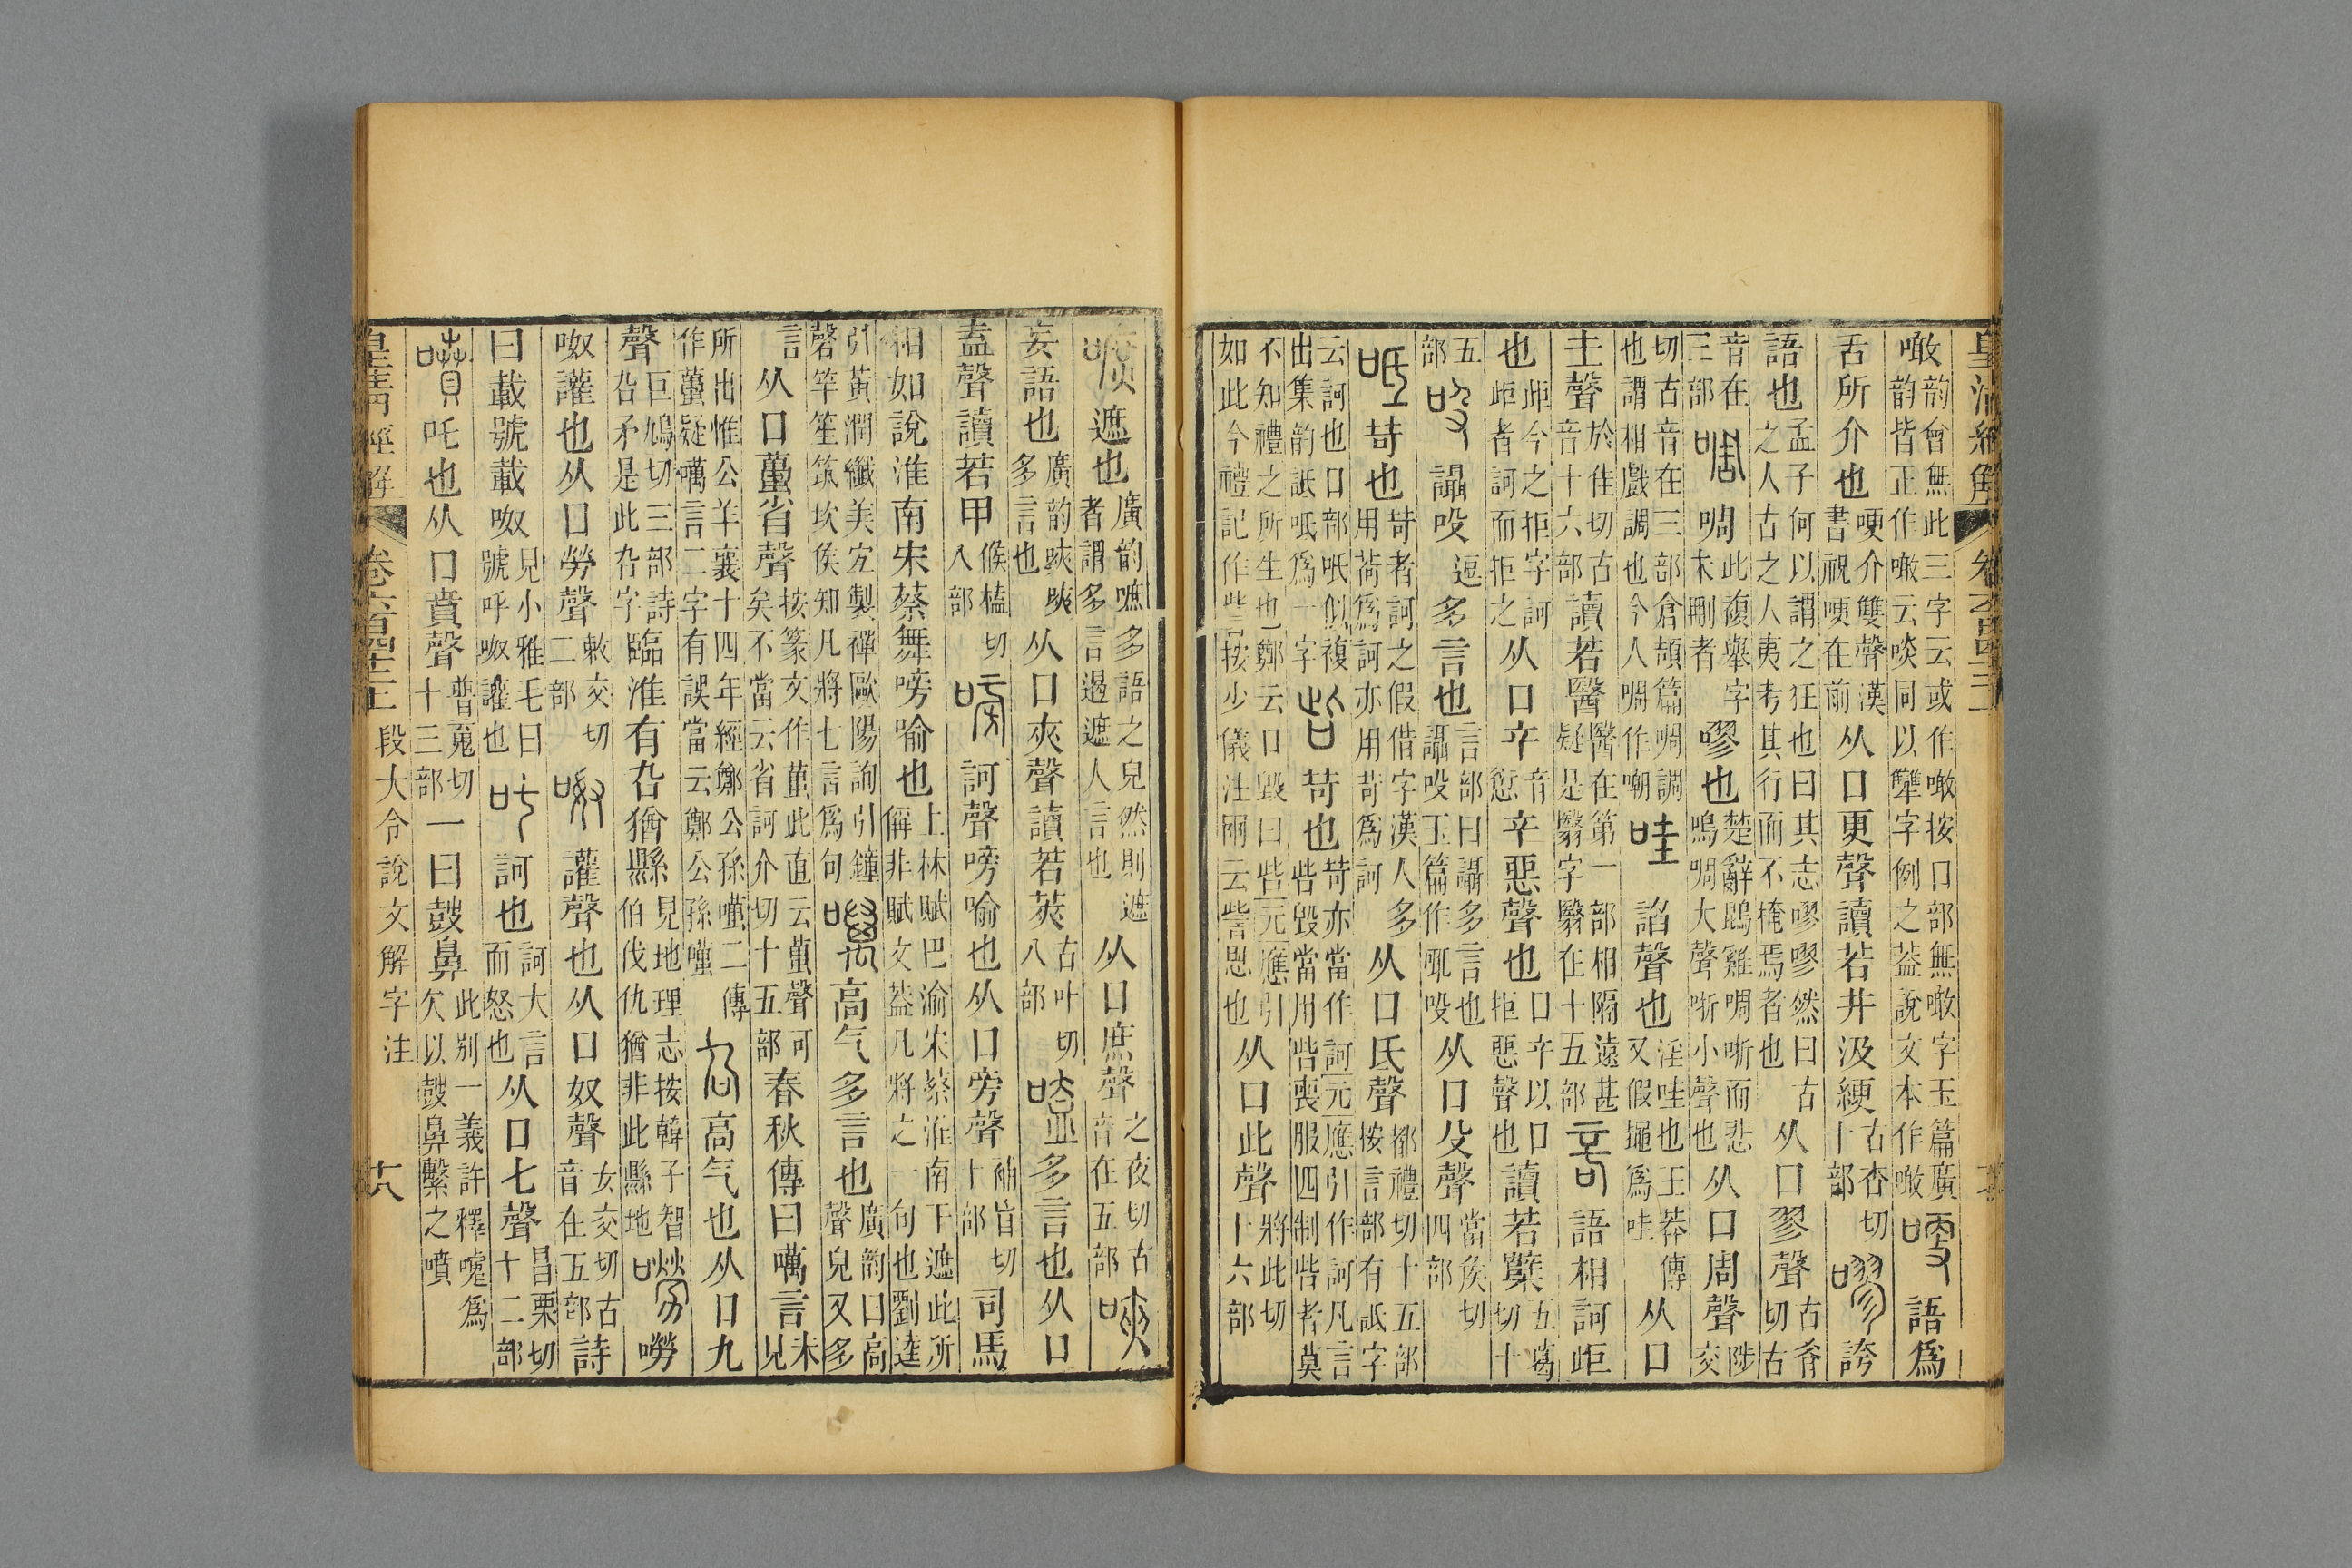 皇清經解 卷六百四十二
噉韵會無此三字云或作噉按口部無噉字玉篇廣韵皆正作噉云啖同以犨字例之葢說文本作噉哽語爲
舌所介也哽介雙聲漢書祝哽在前从口更聲讀若井汲綆古杏切十部嘐誇
語也孟子何以謂之狂也曰其志嘐嘐然曰古之人古之人夷考其行而不掩焉者也从口翏聲古肴切古
音在三部啁啁此複舉字未刪者嘐也楚辭鵾雞啁哳而悲鳴啁大聲哳小聲也从口周聲陟交
切古音在三部倉頡篇啁調也謂相戲調也今人啁作嘲哇諂聲也淫哇也王莽傳又假蠅爲哇从口
圭聲於佳切古音十六部讀若醫醫在第一部相隔遠甚疑是翳字翳在十五部𠵬語相訶歫
也歫今之拒字訶歫者訶而拒之从口䇂音愆䇂惡聲也口䇂以口拒惡聲也讀若櫱五葛切十
五部吺讘吺逗多言也言部曰讘多言也讘吺玉篇作㖪吺从口殳聲當矦切四部
呧苛也苛者訶之假借字漢人多用荷爲訶亦用苛爲訶从口氐聲都禮切十五部按言部有詆字
云訶也口部呧似複出集韵詆呧爲一字呰苛也苛亦當作訶元應引作訶凡言呰毀當用呰喪服四制呰者莫
不知禮之所生也鄭云口毀曰呰元應引如此今禮記作訾按少儀注兩云訾思也从口此聲將此切十六部
嗻遮也廣韵嗻多語之皃然則遮者謂多言遏遮人言也从口庶聲之夜切古音在五部唊
妄語也廣韵唊唊多言也从口夾聲讀若莢古叶切八部嗑多言也从口
盍聲讀若甲候榼切八部嗙訶聲嗙喻也从口旁聲補盲切十部司馬
相如說淮南宋蔡舞嗙喻也上林賦巴渝宋蔡淮南干遮此所偁非賦文葢凡將之一句也劉逵
引黃潤纖美宜製禪歐陽詢引鐘磬竽笙筑坎侯知凡將七言爲句噧高气多言也廣韵曰高聲皃又多
言从口蠆省聲按篆文作蠆此直云蠆聲可矣不當云省訶介切十五部春秋傳曰噧言未見
所出惟公羊襄十四年經鄭公孫囆二傳作蠆疑噧言二字有誤當云鄭公孫囆叴高气也从口九
聲巨鳩切三部詩厹矛是此叴字臨淮有叴猶縣見地理志按韓子智伯伐仇猶非此縣地嘮嘮
呶讙也从口勞聲敕交切二部呶讙聲也从口奴聲女交切古音在五部詩
曰載號載呶見小雅毛曰號呼呶讙也叱訶也訶大言而怒也从口七聲昌栗切十二部
噴吒也从口賁聲普䰟切十三部一曰鼓鼻此別一義許釋嚏爲欠以鼓鼻繫之噴
皇清經解 卷六百四十二 段大令說文解字注 十八